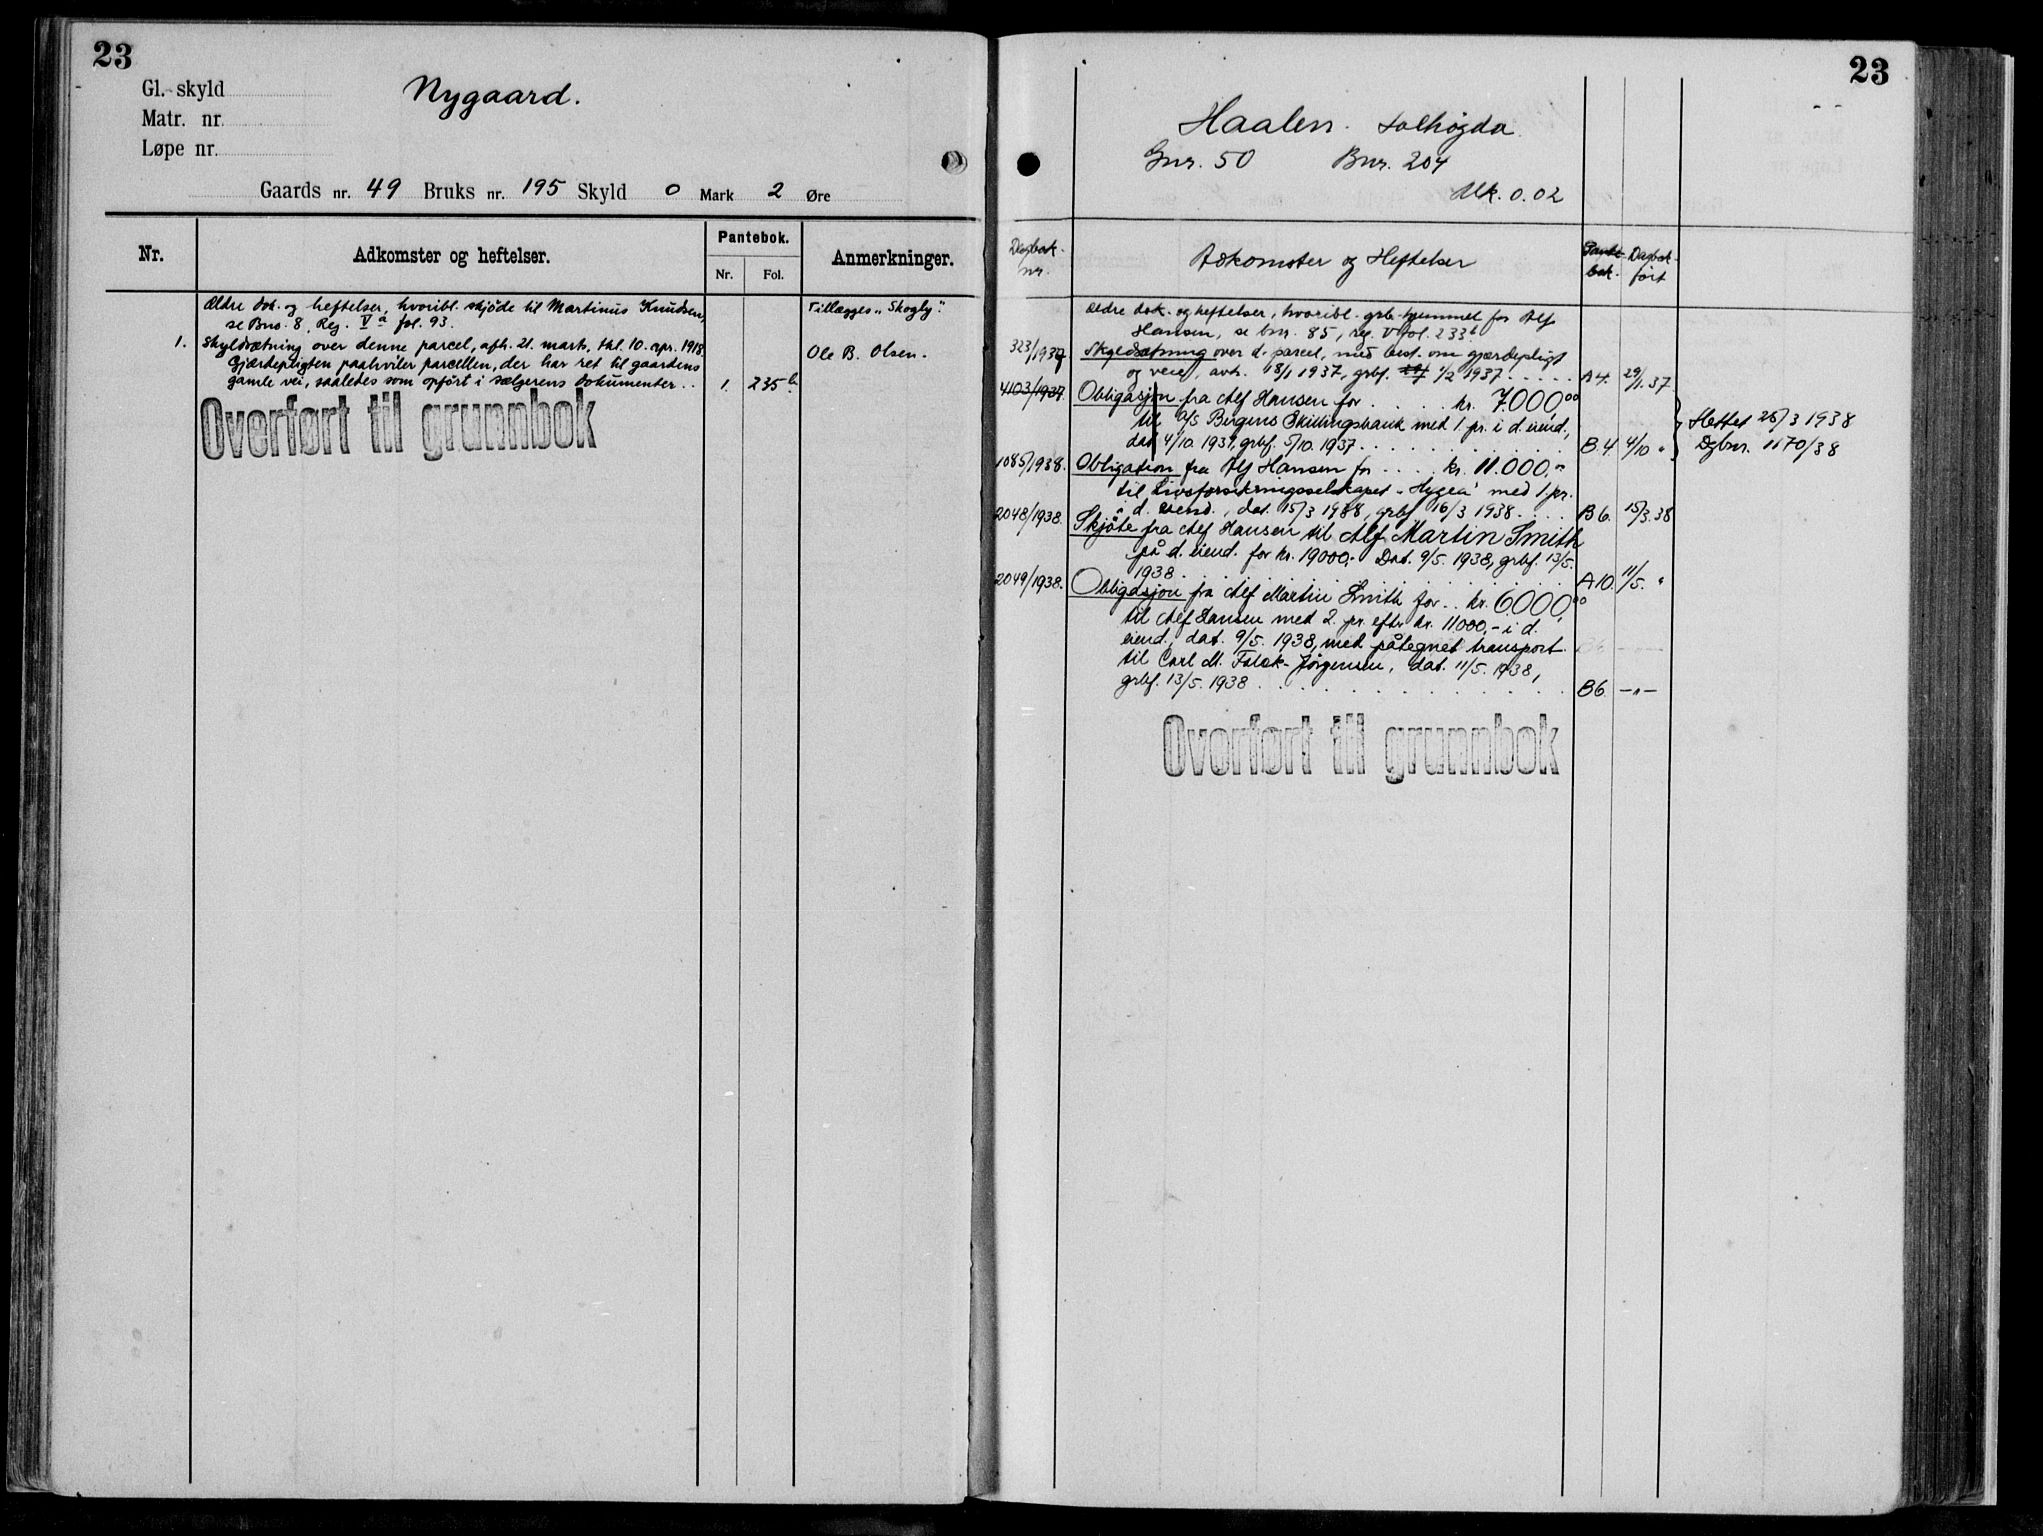 23
Gl. skyld
Nygaard.
Matr. nr.
Løpe nr.
Gaards nr. 49 Bruks nr. 195 Skyld 0 Mark 2 Øre
Nr.
Adkomster og heftelser.
Pantebok.
Nr.
Fol.
Anmerkninger.
Ældre dok. og heftelser, hvoribl. skjøde til Martinus Knudsen,
se Bno. 8, Reg. V a fol. 93.
Tillægges „Skogly".
1. Skyldsætning over denne parcel, afh. 21. mart, thl. 10. apr. 1918.
Gjærdepligten paahviler parcellen, der har ret til gaardens
gamle vei, saaledes som opført i sælgerens dokumenter . . 1. 235 b
Ole B. Olsen.
Overført til grunnbok
23
Haalen. Solhøgda
Gnr. 50 Bnr. 204
Mk. 0.02
Dagbok nr.
Adkomster og Heftelser
Pantebok.
Dagbok ført
Ældre dok. og heftelser, hvoribl. grb. hjemmel for Alf
Hansen, se bnr. 85, reg. V fol. 233 b
323/1937 Skyldsætning over d. parcel, med best. om gjærdepligt
og veie, avh. 18/1 1937, grbf. 1/2 1937 . . . . . A 4. 29/1.37
4103/1937 Obligasjon fra Alf Hansen for . . . . kr. 7000,00
til A/S Bergens Skillingsbank med 1. pr. i d. eiend.,
dat. 4/10. 1937, grbf. 5/10. 1937 . . . . . . . . B.4. 4/10 "
Slettet 26/3 1938
Dgbnr. 1170/38
1085/1938. Obligation fra Alf Hansen for . . . . kr. 11.000,-
til Livsforsikringsselskapet „Hygea" med 1. pr.
i d. eiend., dat. 15/3 1938, grbf. 16/3 1938 . . . . B 6. 15/3.38
2048/1938. Skjøte fra Alf Hansen til Alf Martin Smith
på d. eiend. for kr. 19000,- Dat. 9/5. 1938, grbf. 13/5.
1938 . . . . . . . . . . . A 10. 11/5. "
2049/1938. Obligasjon fra Alf Martin Smith for . . kr. 6000,00
til Alf Hansen med 2. pr. efter kr. 11000,- i d.
eiend., dat. 9/5. 1938, med påtegnet transport
til Carl M. Falck-Jørgensen, dat. 11/5. 1938,
grbf. 13/5. 1938 . . . . . . . . . . . . B 6. — " —
Overført til grunnbok